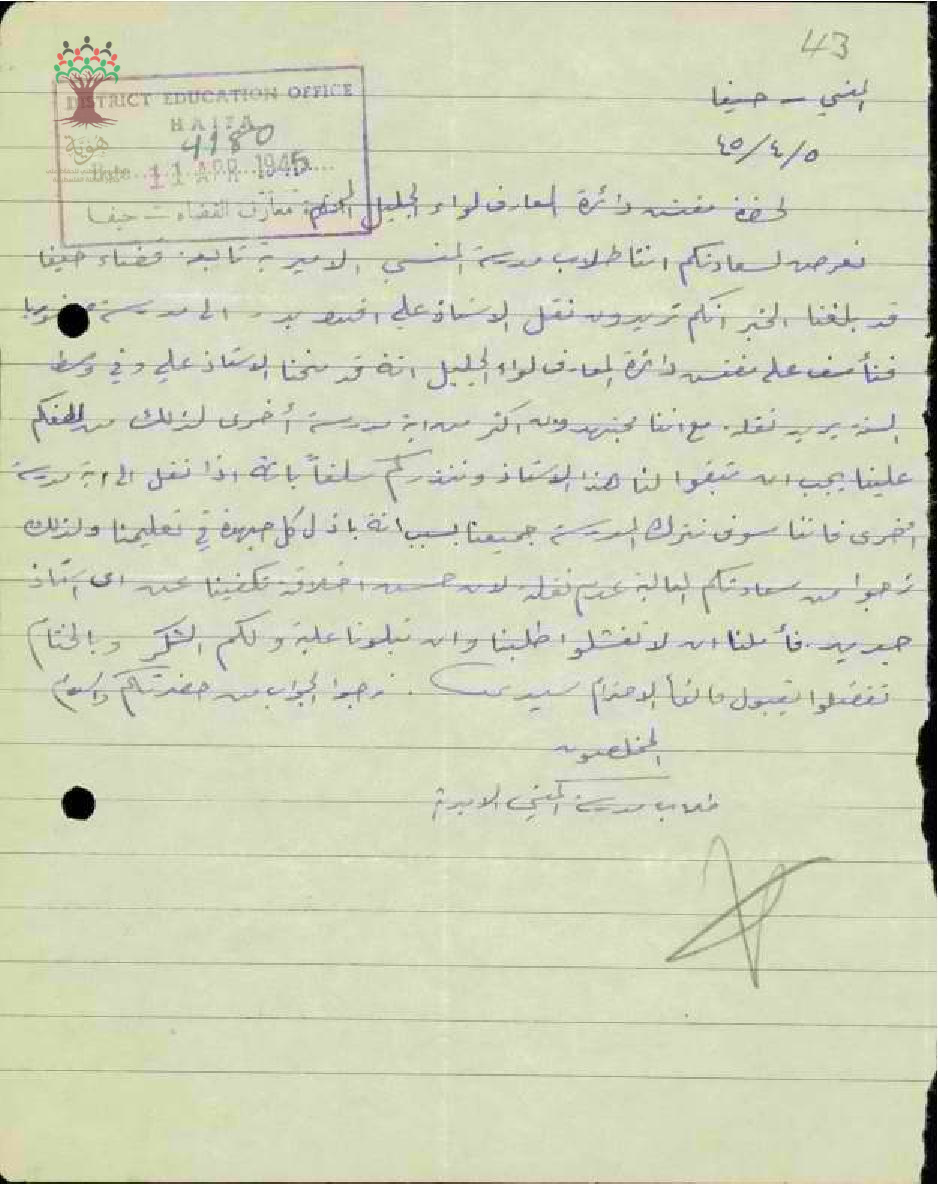 43
المنسي - حيفا
٤٥/٤/٥
DISTRICT EDUCATION OFFICE
HAIFA
4180
هوية
Date 11 APR 1945
معارف القضاء - حيفا
لحضرة مفتش دائرة المعارف لواء الجليل المحترم
نعرض لسعادتكم اننا طلاب مدرسة المنسي الاميرية تابعة قضاء حيفا
قد بلغنا الخبر انكم تريدون نقل الاستاذ علي افندي الى مدرسة
فنأسف على مفتش دائرة المعارف لواء الجليل انة قد منحنا الاستاذ علي وفي وسط
السنة يريد نقله. مع اننا مجتهدون اكثر من اية مدرسة أخرى لذلك من لطفكم
علينا يجب ان تبقوا لنا هذا الاستاذ وننذركم سلفاً بانة اذا نقل الى اية مدرسة
اخرى فاننا سوف نترك المدرسة جميعنا بسبب انة باذل كل جهده في تعليمنا ولذلك
نرجوا من سعادتكم العالية عدم نقله لان حسن اخلاقة تكفينا عن اي استاذ
جديد. فأملنا ان لا تفشلوا طلبنا وان علية ولكم الشكر وبالختام
تفضلوا بقبول فائق الاحترام سيدي. نرجوا الجواب من حضرتكم والسلام
المخلصون
طلاب مدرسة المنسي الاميرية